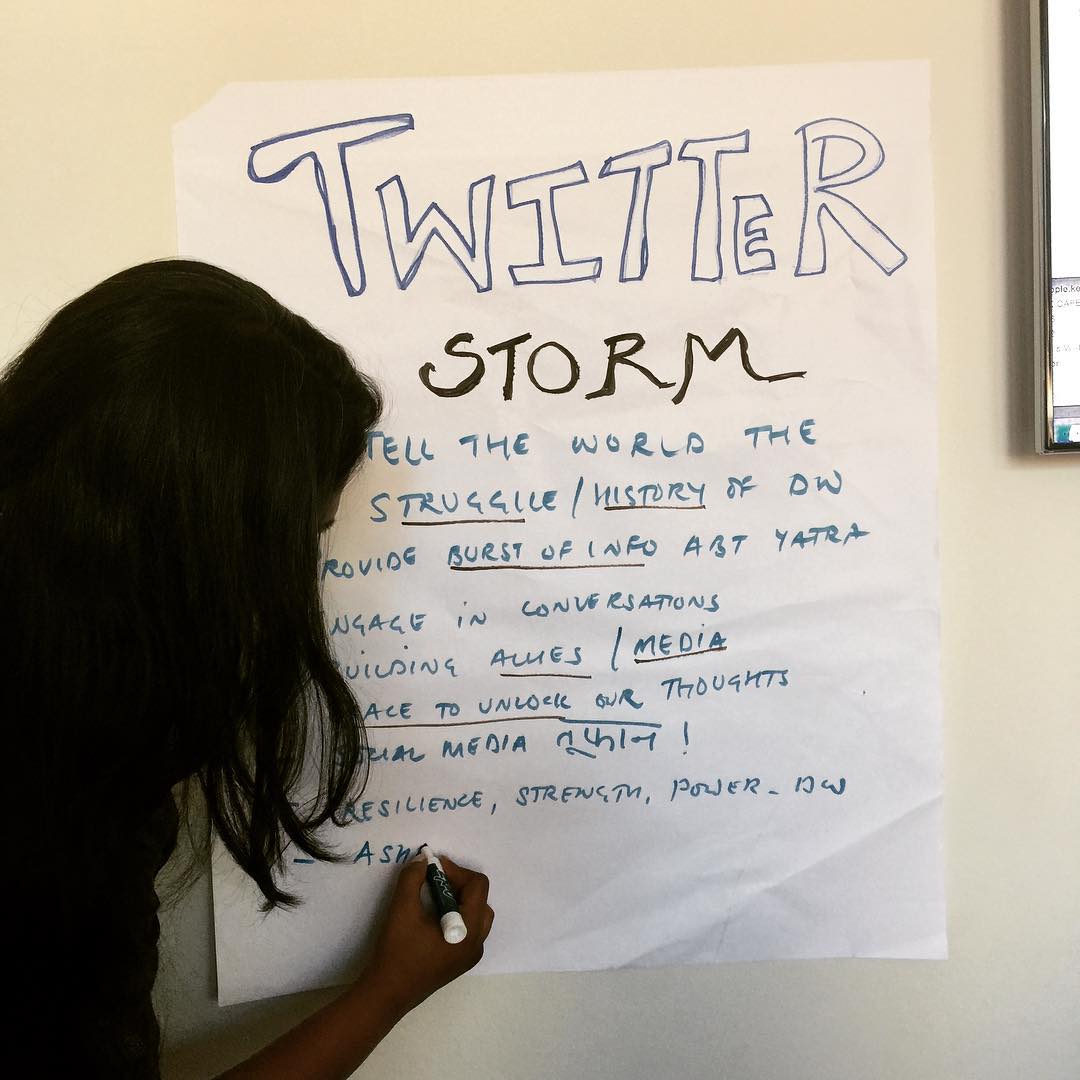 TWITTER
STORM
TELL THE WORLD THE
STRUGGLE / HISTORY OF DW
ROVIDE BURST OF INFO ABT YATRA
NGAGE IN CONVERSATIONS
UILDING ALLIES / MEDIA
ACE TO UNLOCK OUR THOUGHTS
SOCIAL MEDIA तूफान !
RESILIENCE, STRENGTH, POWER - DW
- ASH